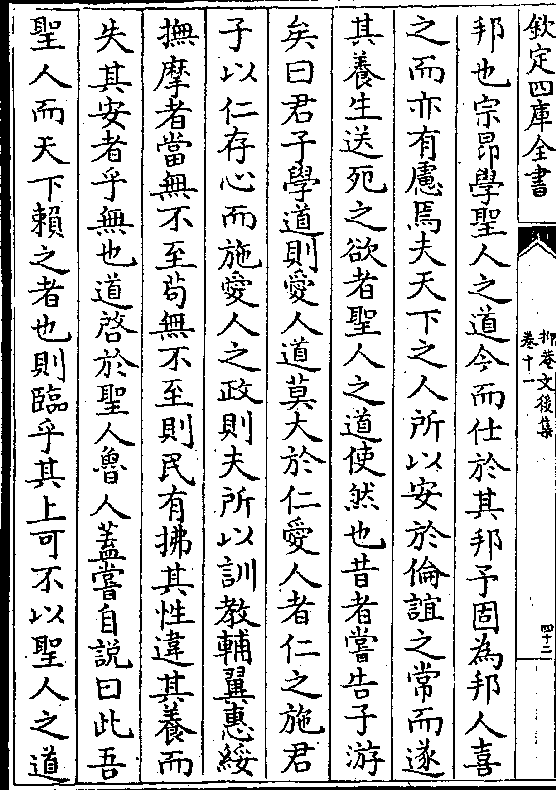 欽定四庫全書
抑菴文後集
卷十一
四十二
邦也宗昂學聖人之道今而仕於其邦予固為邦人喜
之而亦有慮焉夫天下之人所以安於倫誼之常而遂
其養生送死之欲者聖人之道使然也昔者嘗告子游
矣曰君子學道則愛人道莫大於仁愛人者仁之施君
子以仁存心而施愛人之政則夫所以訓教輔翼惠綏
撫摩者當無不至茍無不至則民有拂其性違其養而
失其安者乎無也道啓於聖人魯人蓋嘗自説曰此吾
聖人而天下賴之者也則臨乎其上可不以聖人之道